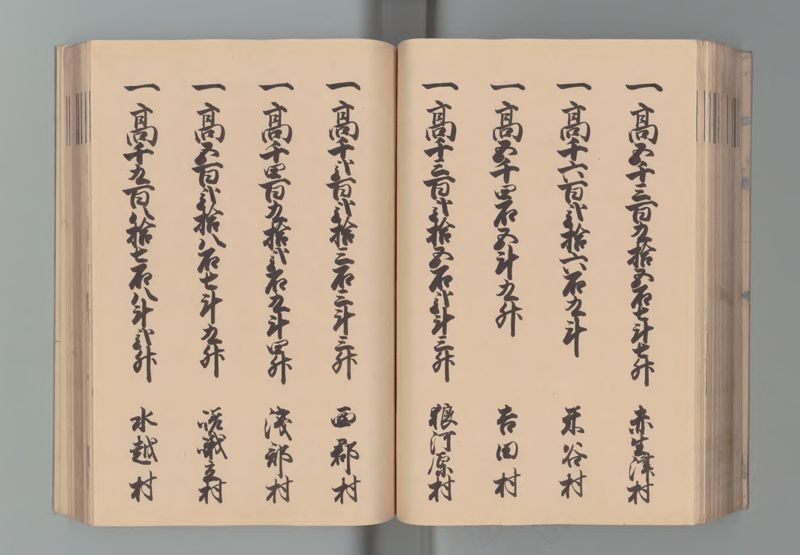 一 高五千三百九拾五石七斗七升 赤生津村
一 高千六百弐拾六石九斗 米谷村
一 高五千四石五斗九升 吉田村
一 高千三百弐拾五石弐斗三升 狼河原村
一 高千弐百弐拾三石三斗三升 西郡村
一 高千四百九拾弐石九斗四升 浅部村
一 高五百弐拾八石七斗九升 村
一 高千九百八拾七石八斗弐升 水越村